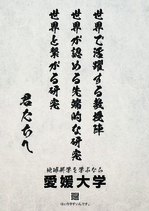 世界で活躍する教授陣
世界が認める先端的な研究
世界と繋がる研究
君たちへ
地球科学を学ぶなら
愛媛大学